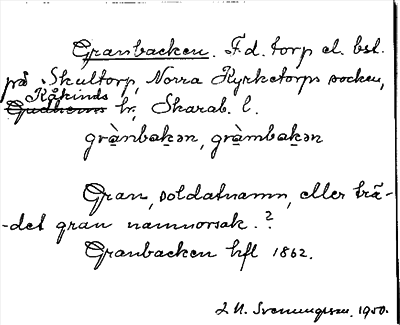 Granbacken. F.d. torp el. bst.
på Skultorp, Norra Kyrketorps socken,
Kåkinds
Gudhems hr, Skarab. l.
grànbakən, gràmbakən
Gran, soldatnamn, eller trä-
-det gran namnorsak.?
Granbacken hfl 1862.
J. N. Svenungsson. 1950.